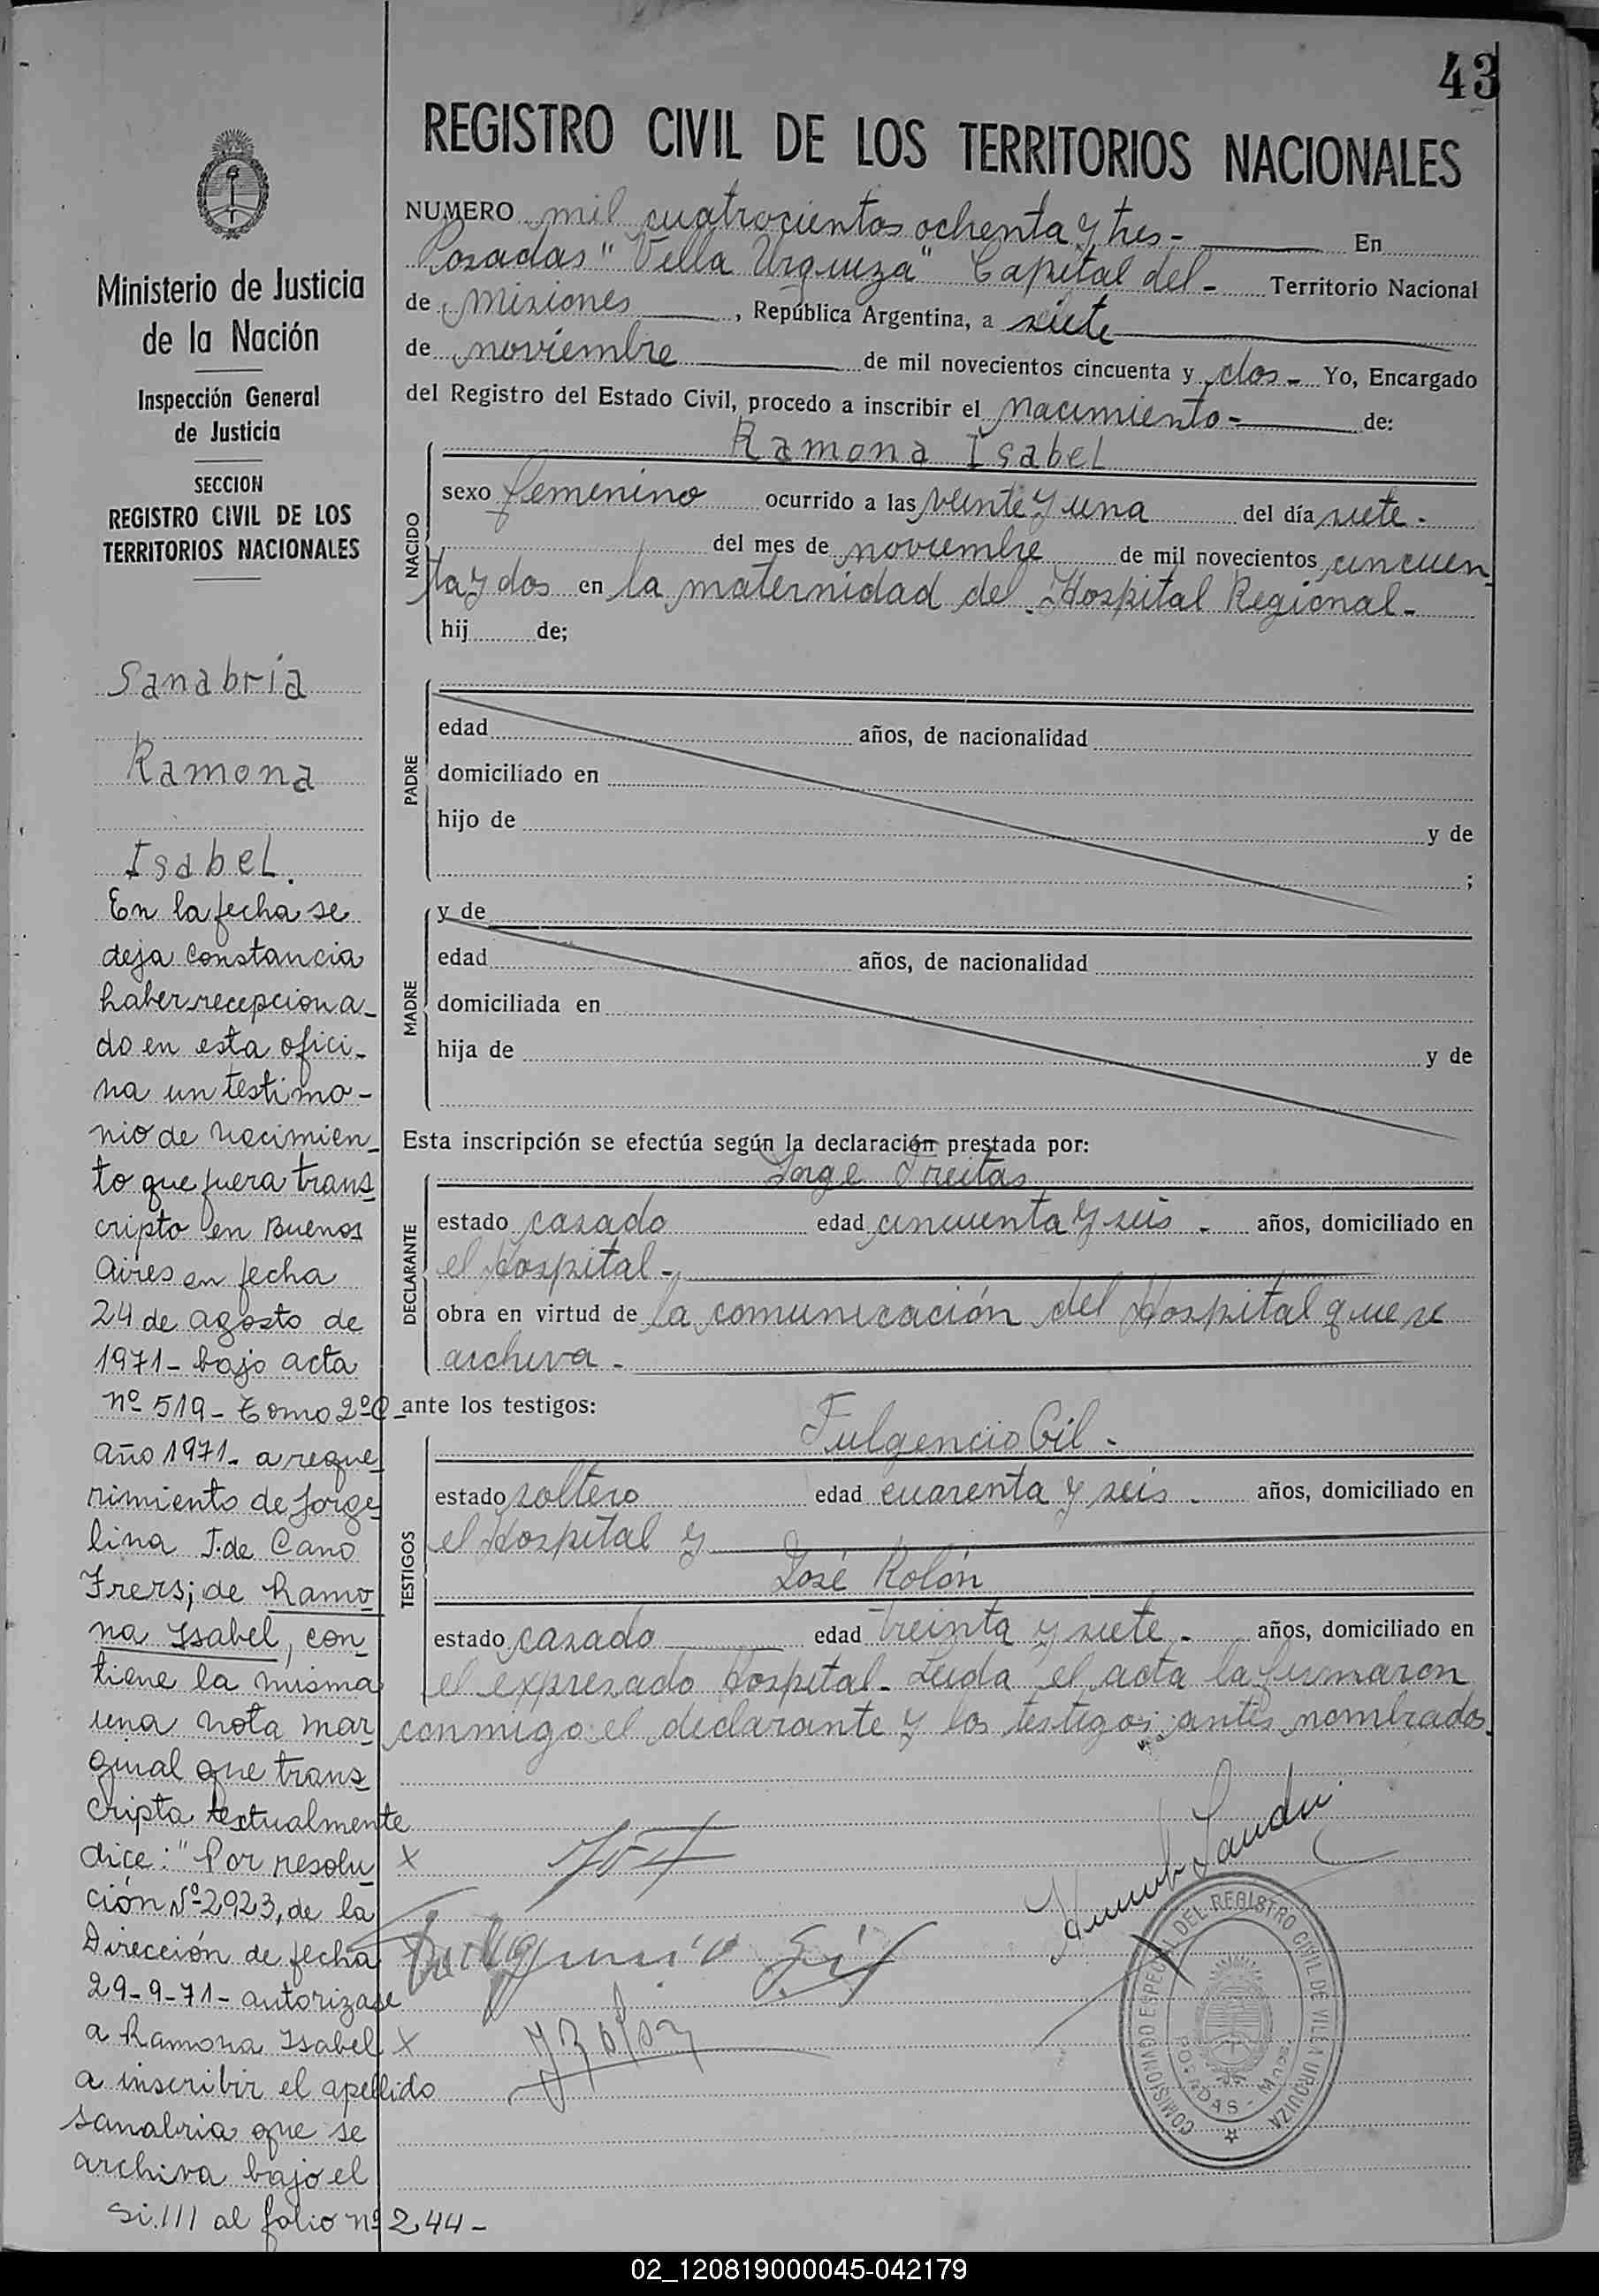 43
REGISTRO CIVIL DE LOS TERRITORIOS NACIONALES
Ministerio de Justicia
de la Nación
Inspección General
de Justicia
SECCION
REGISTRO CIVIL DE LOS
TERRITORIOS NACIONALES
Sanabria
Ramona
Isabel.
En la fecha se
deja constancia
haber recepciona_
do en esta ofici_
na un testimo-
nio de nacimien_
to que fuera trans
cripto en Buenos
Aires en fecha
24 de agosto de
1971- bajo acta
nº 519- Tomo 2º C-
año 1971- a reque
rimiento de Jorge
lina J. de Cano
Frers; de Ramo
na Isabel, con
tiene la misma
una nota mar
ginal que trans
cripta textualmente
dice: "Por resolu
ción Nº 2923, de la
Dirección de fecha
29-9-71- autorizase
a Ramona Isabel
a inscribir el apellido
Sanabria que se
archiva bajo el
Si. III al folio nº 244-
NUMERO mil cuatrocientos ochenta y tres- En
Posadas "Villa Urquiza" Capital del - Territorio Nacional
de Misiones , República Argentina, a siete
de noviembre de mil novecientos cincuenta y dos- Yo, Encargado
del Registro del Estado Civil, procedo a inscribir el nacimiento- de:
Ramona Isabel
NACIDO
sexo femenino ocurrido a las veinte y una del día siete-
del mes de noviembre de mil novecientos cincuen
ta y dos en la maternidad del Hospital Regional-
hij de;
PADRE
edad años, de nacionalidad
domiciliado en
hijo de y de
;
MADRE
y de
edad años, de nacionalidad
domiciliada en
hija de y de
Esta inscripción se efectúa según la declaración prestada por:
Jorge Freitas
DECLARANTE
estado casado edad cincuenta y seis - años, domiciliado en
el Hospital-
obra en virtud de la comunicación del Hospital que se
archiva-
ante los testigos:
Fulgencio Gil-
TESTIGOS
estado soltero edad cuarenta y seis- años, domiciliado en
el Hospital y
José Rolón
estado casado edad treinta y siete- años, domiciliado en
el expresado Hospital- Leida el acta la firmaron
conmigo el declarante y los testigos antes nombrados.
x
Fulgencio Gil
x
COMISIONADO ESPECIAL DEL REGISTRO CIVIL DE VILLA URQUIZA
POSADAS - Mnes.
02_120819000045-042179